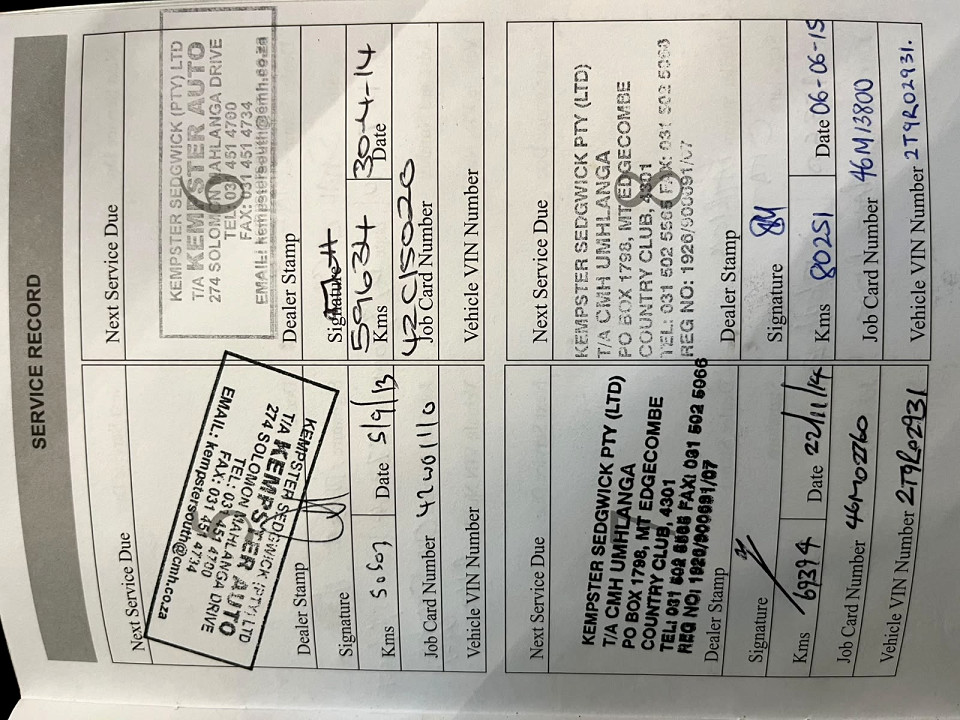 SERVICE RECORD
Next Service Due
KEMPSTER SEDGWICK (PTY) LTD
T/A KEMPSTER AUTO
274 SOLOMON MAHLANGA DRIVE
TEL: 031 451 4700
FAX: 031 451 4734
EMAIL: kempstersouth@cmh.co.za
Dealer Stamp
Signature
Kms 50503 Date 5/9/13
Job Card Number 42W01110
Vehicle VIN Number
Next Service Due
KEMPSTER SEDGWICK (PTY) LTD
T/A KEMPSTER AUTO
274 SOLOMON MAHLANGA DRIVE
TEL: 031 451 4700
FAX: 031 451 4734
EMAIL: kempstersouth@cmh.co.za
Dealer Stamp
Signature
Kms 59634 Date 30-4-14
Job Card Number 42C1S020
Vehicle VIN Number
Next Service Due
KEMPSTER SEDGWICK PTY (LTD)
T/A CMH UMHLANGA
PO BOX 1798, MT EDGECOMBE
COUNTRY CLUB, 4301
TEL: 031 502 5565 FAX: 031 502 5066
REG NO: 1926/000691/07
Dealer Stamp
Signature
Kms 69394 Date 22/11/14
Job Card Number 46M02260
Vehicle VIN Number 2T9R02931
Next Service Due
8
KEMPSTER SEDGWICK PTY (LTD)
T/A CMH UMHLANGA
PO BOX 1798, MT EDGECOMBE
COUNTRY CLUB, 4301
TEL: 031 502 5565 FAX: 031 502 5066
REG NO: 1926/000091/07
Dealer Stamp
Signature
Kms 80251 Date 06-06-15
Job Card Number 46M13800
Vehicle VIN Number 2T9R02931.